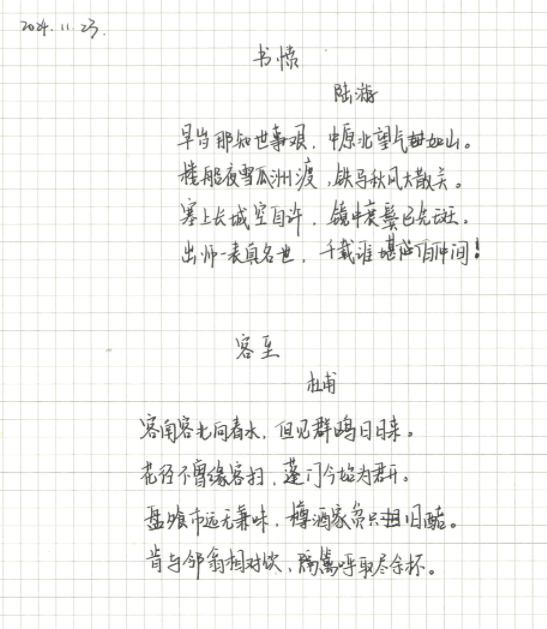 2024.11.23.
书愤
陆游
早岁那知世事艰，中原北望气如山。
楼船夜雪瓜洲渡，铁马秋风大散关。
塞上长城空自许，镜中衰鬓已先斑。
出师一表真名世，千载谁堪伯仲间！
客至
杜甫
客南客北向春水，但见群鸥日日来。
花径不曾缘客扫，蓬门今始为君开。
盘飧市远无兼味，樽酒家贫只旧醅。
肯与邻翁相对饮，隔篱呼取尽余杯。